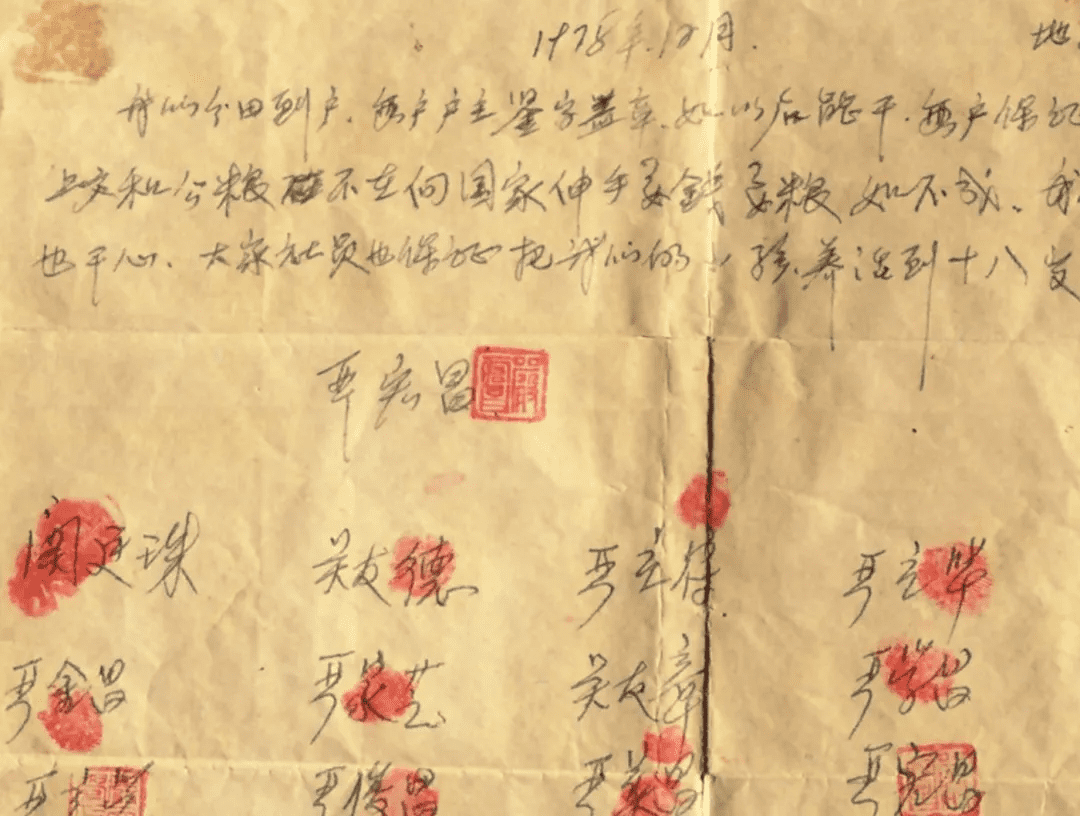 1978年.12月. 地
我们分田到户.每户户主鉴字盖章.如以后能干.每户保证
上交和公粮 不在向国家伸手要錢要粮 如不成.我
也干心.大家社员也保证把我们的小孩养活到十八岁
严宏昌
关廷珠 关友德 严立符 严立华
严金昌 严家芝 关友章 严学昌
严俊昌 严美昌 严宏昌